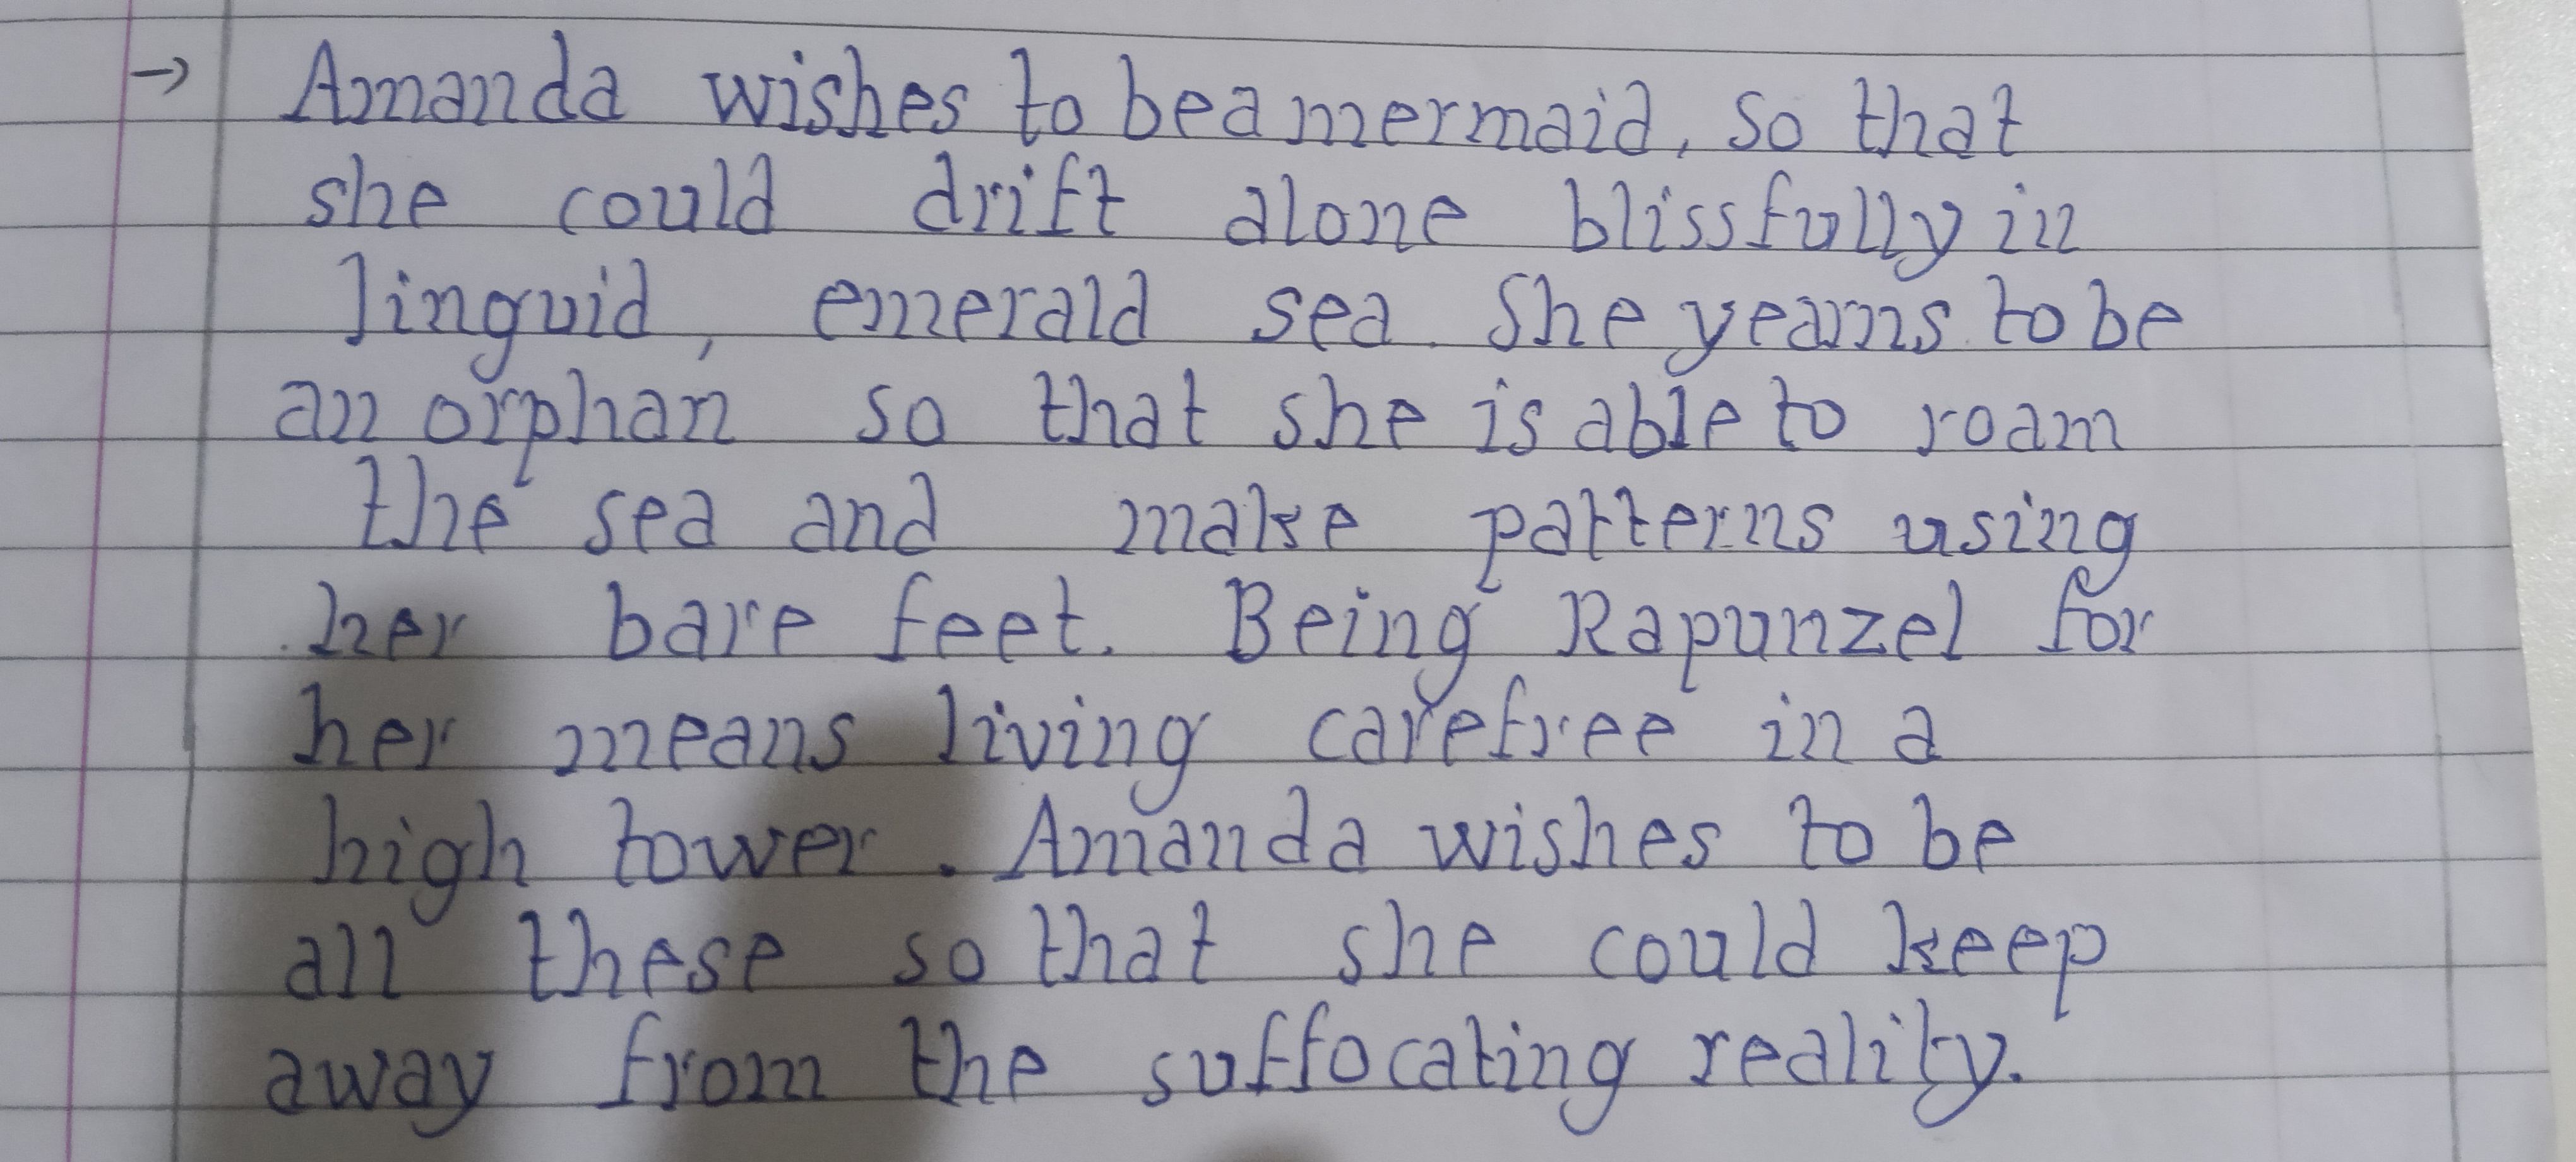 → Amanda wishes to be a mermaid, so that
she could drift alone blissfully in
linguid, emerald sea. She yearns to be
an orphan so that she is able to roam
the sea and make patterns using
her bare feet. Being Rapunzel for
her means living carefree in a
high tower. Amanda wishes to be
all these so that she could keep
away from the suffocating reality.